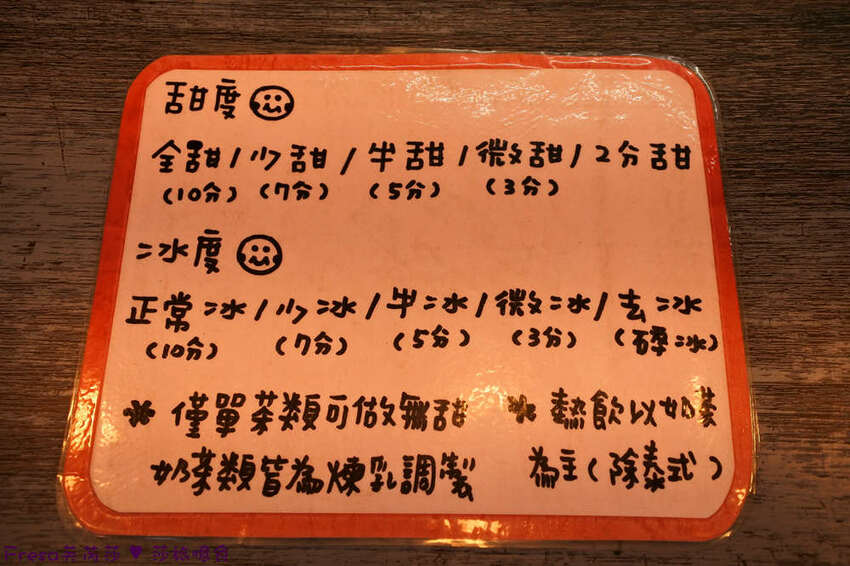 甜度
全甜/少甜/半甜/微甜/2分甜
(10分) (7分) (5分) (3分)
冰度
正常冰/少冰/半冰/微冰/去冰
(10分) (7分) (5分) (3分) (碎冰)
* 僅單茶類可做無甜
奶茶類皆為煉乳調製
* 熱飲以奶茶
為主(除泰式)